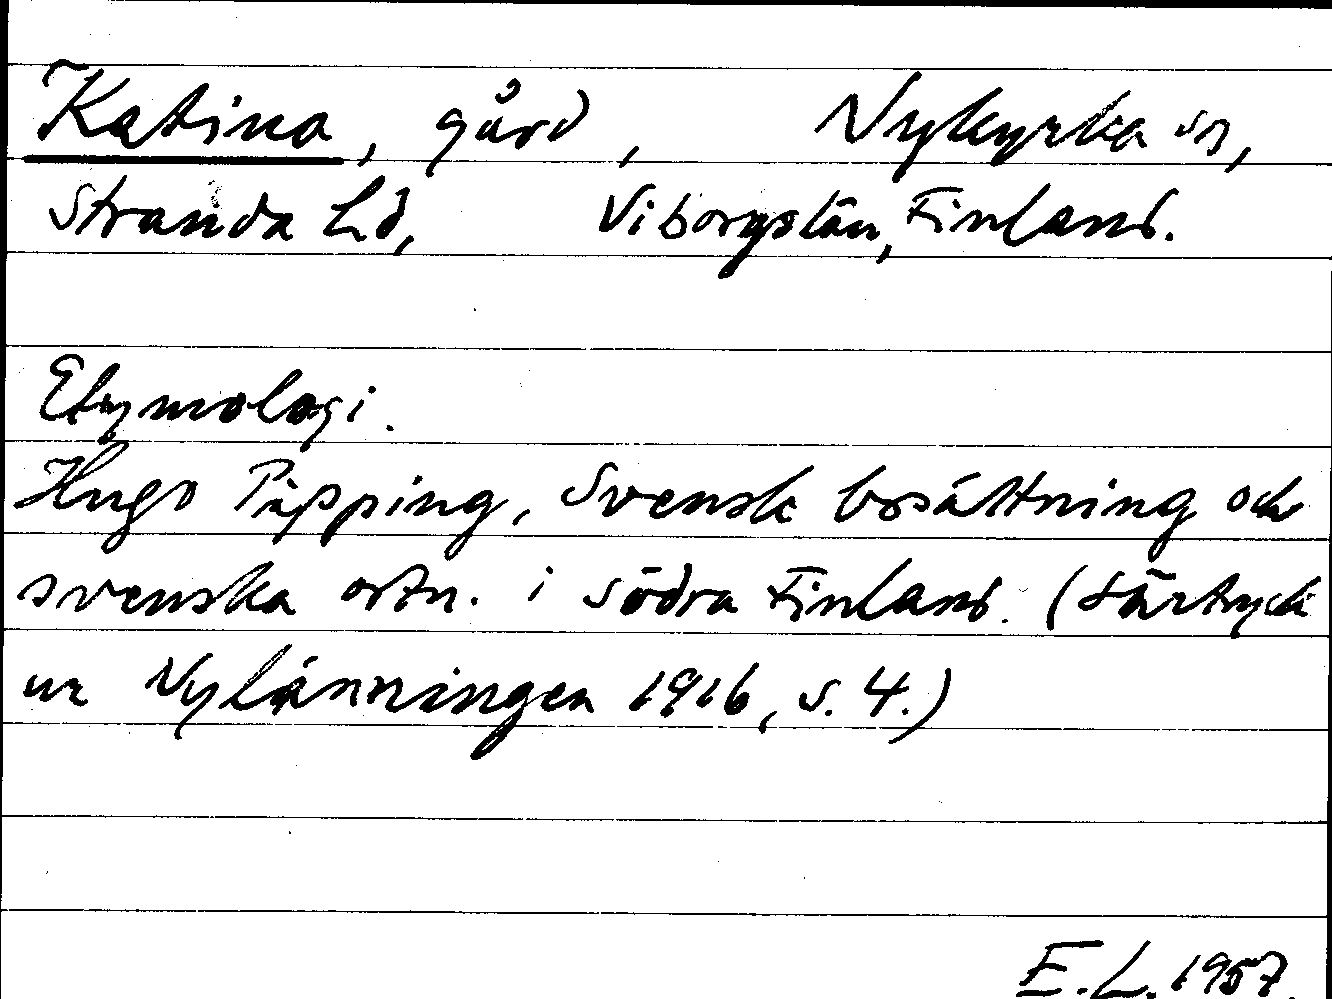 Katina, gård, Nykyrka sn,
Stranda hd, Viborgslän, Finland.
Etymologi.
Hugo Pipping, Svensk bosättning och
svenska ortn. i södra Finland. (Särtryck
ur Nylänningen 1916, s. 4.)
E.L. 1957.